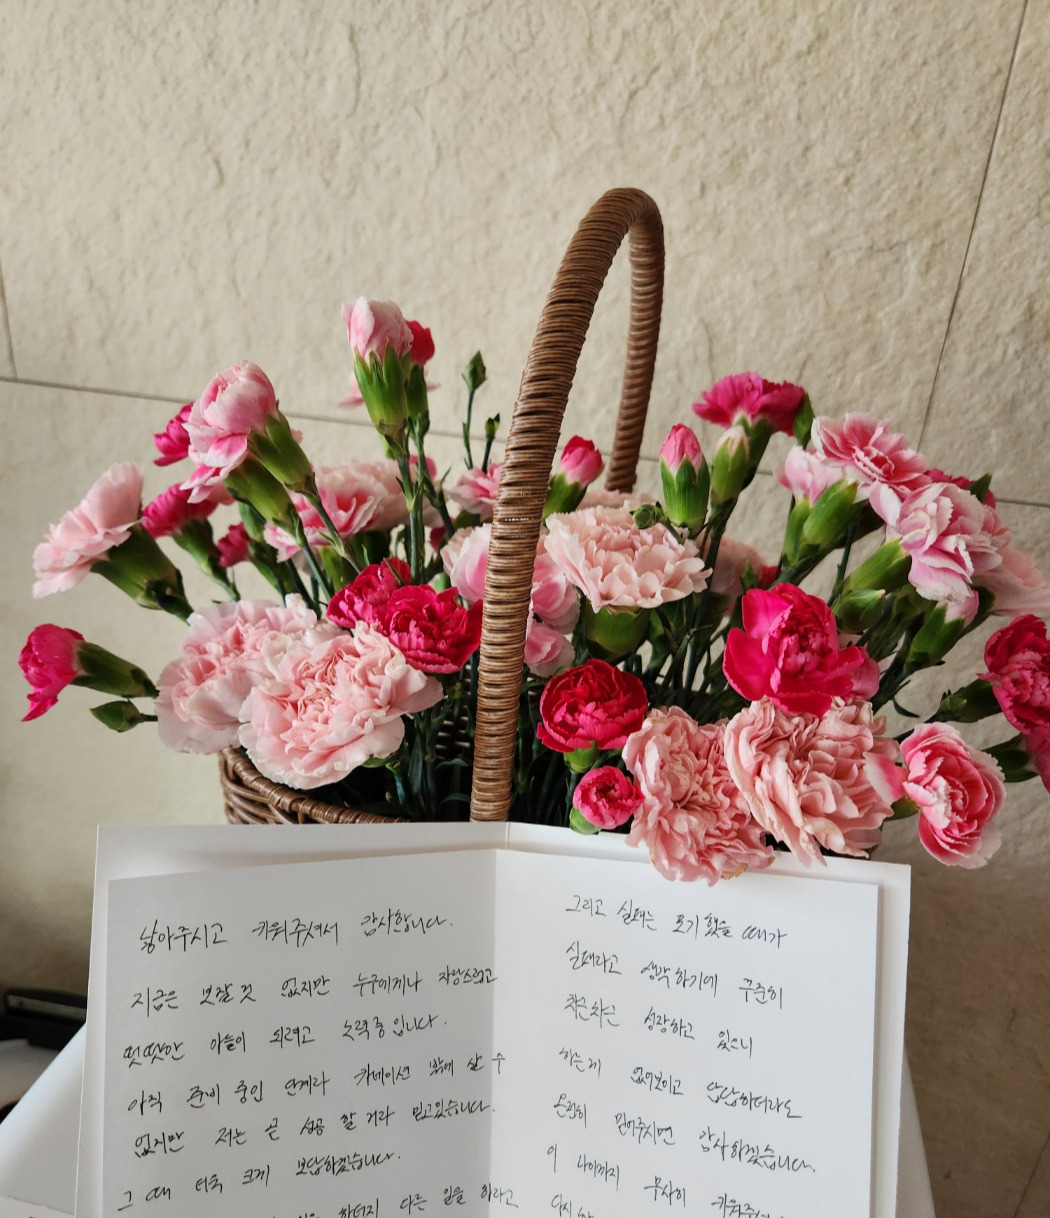 낳아주시고 키워주셔서 감사합니다.
지금은 보잘 것 없지만 누구에게나 자랑스럽고
떳떳한 아들이 되려고 노력중입니다.
아직 준비 중인 단계라 카네이션 밖에 살 수
없지만 저는 곧 성공 할 거라 믿고있습니다.
그 때 더욱 크게 보답하겠습니다.
하던지 다른 일을 하라고
그리고 실패는 포기했을 때가
실패라고 생각하기에 꾸준히
차근차근 성장하고 있으니
하는게 없어보이고 답답하더라도
온전히 믿어주시면 감사하겠습니다.
이 나이까지 무사히
다시